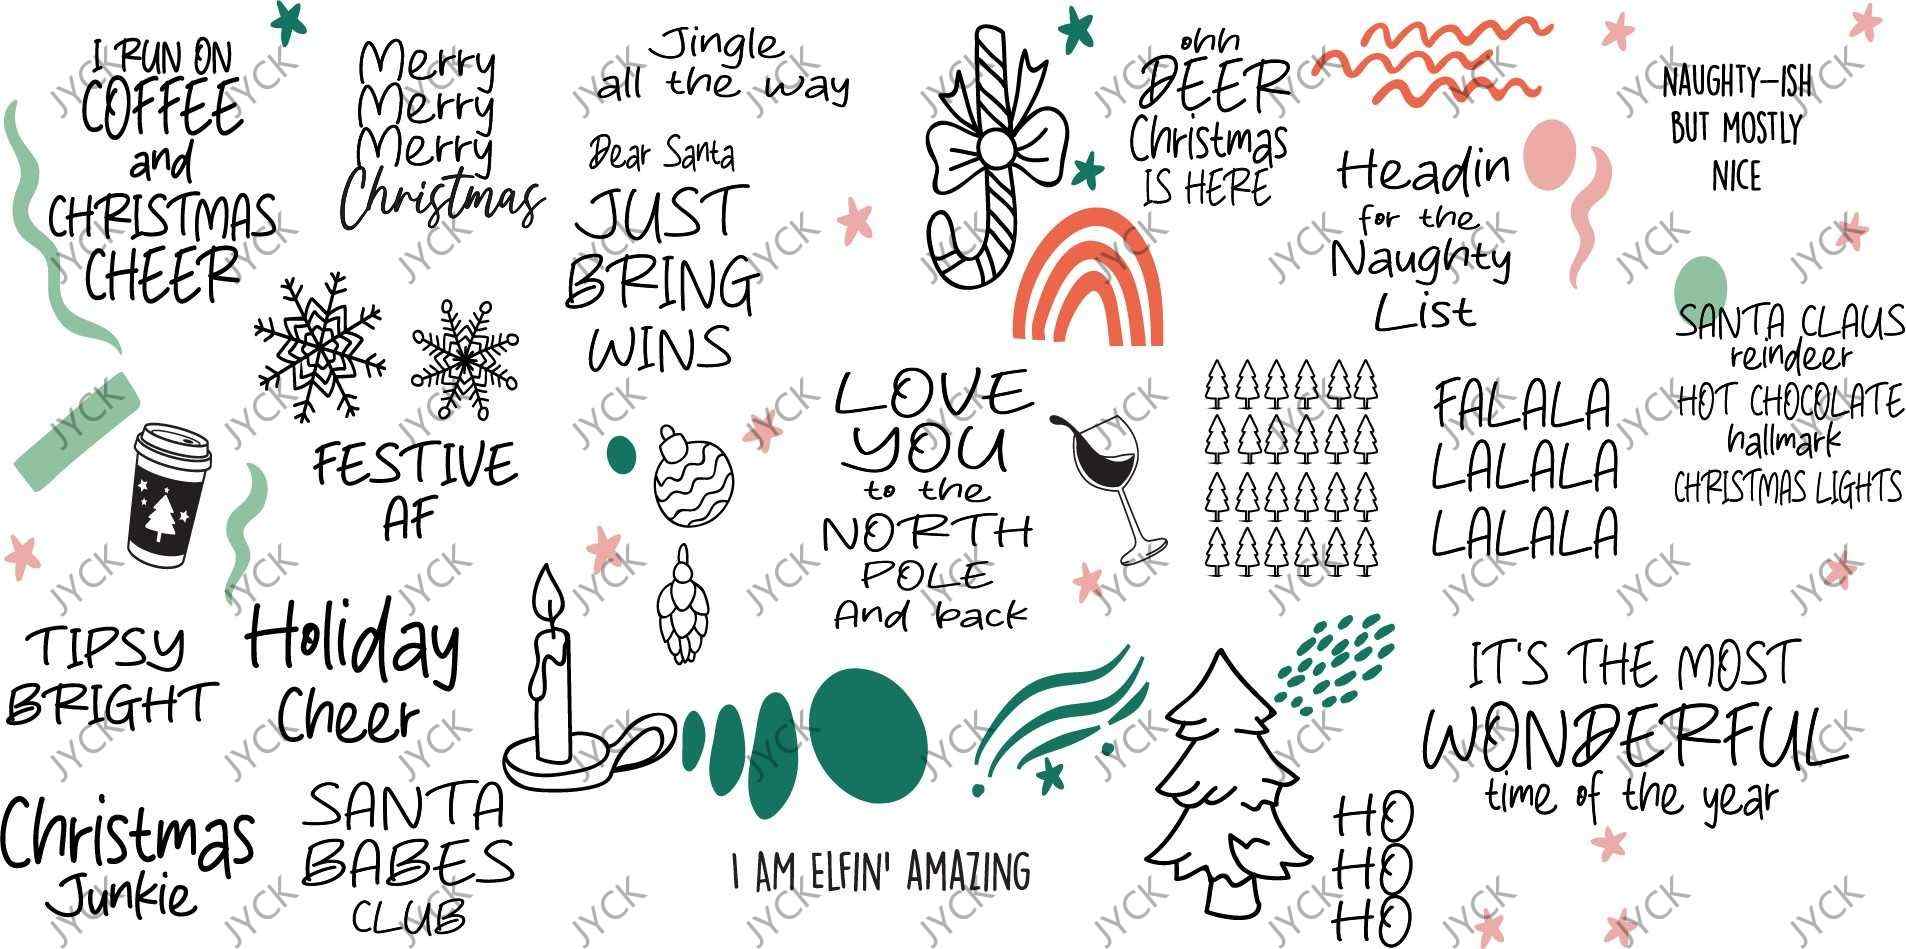 I RUN ON
COFFEE
and
CHRISTMAS
CHEER
Merry
Merry
Merry
Christmas
Jingle
all the way
Dear Santa
JUST
BRING
WINS
ohh
DEER
Christmas
IS HERE
Headin
for the
Naughty
List
NAUGHTY-ISH
BUT MOSTLY
NICE
SANTA CLAUS
reindeer
HOT CHOCOLATE
hallmark
CHRISTMAS LIGHTS
FESTIVE
AF
LOVE
YOU
to the
NORTH
POLE
And back
FALALA
LALALA
LALALA
TIPSY
BRIGHT
Holiday
Cheer
IT'S THE MOST
WONDERFUL
time of the year
Christmas
Junkie
SANTA
BABES
CLUB
I AM ELFIN' AMAZING
HO
HO
HO
JYCK